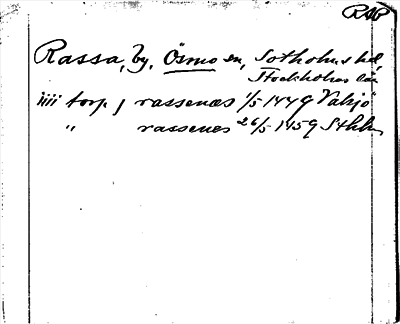 RAP
Rassa, by, Ösmo sn, Sotholms hd,
Stockholms län
iiii torp j rassenæs 1/5 1449 Valsjö
" rassenes 26/5 1459 Sthlm